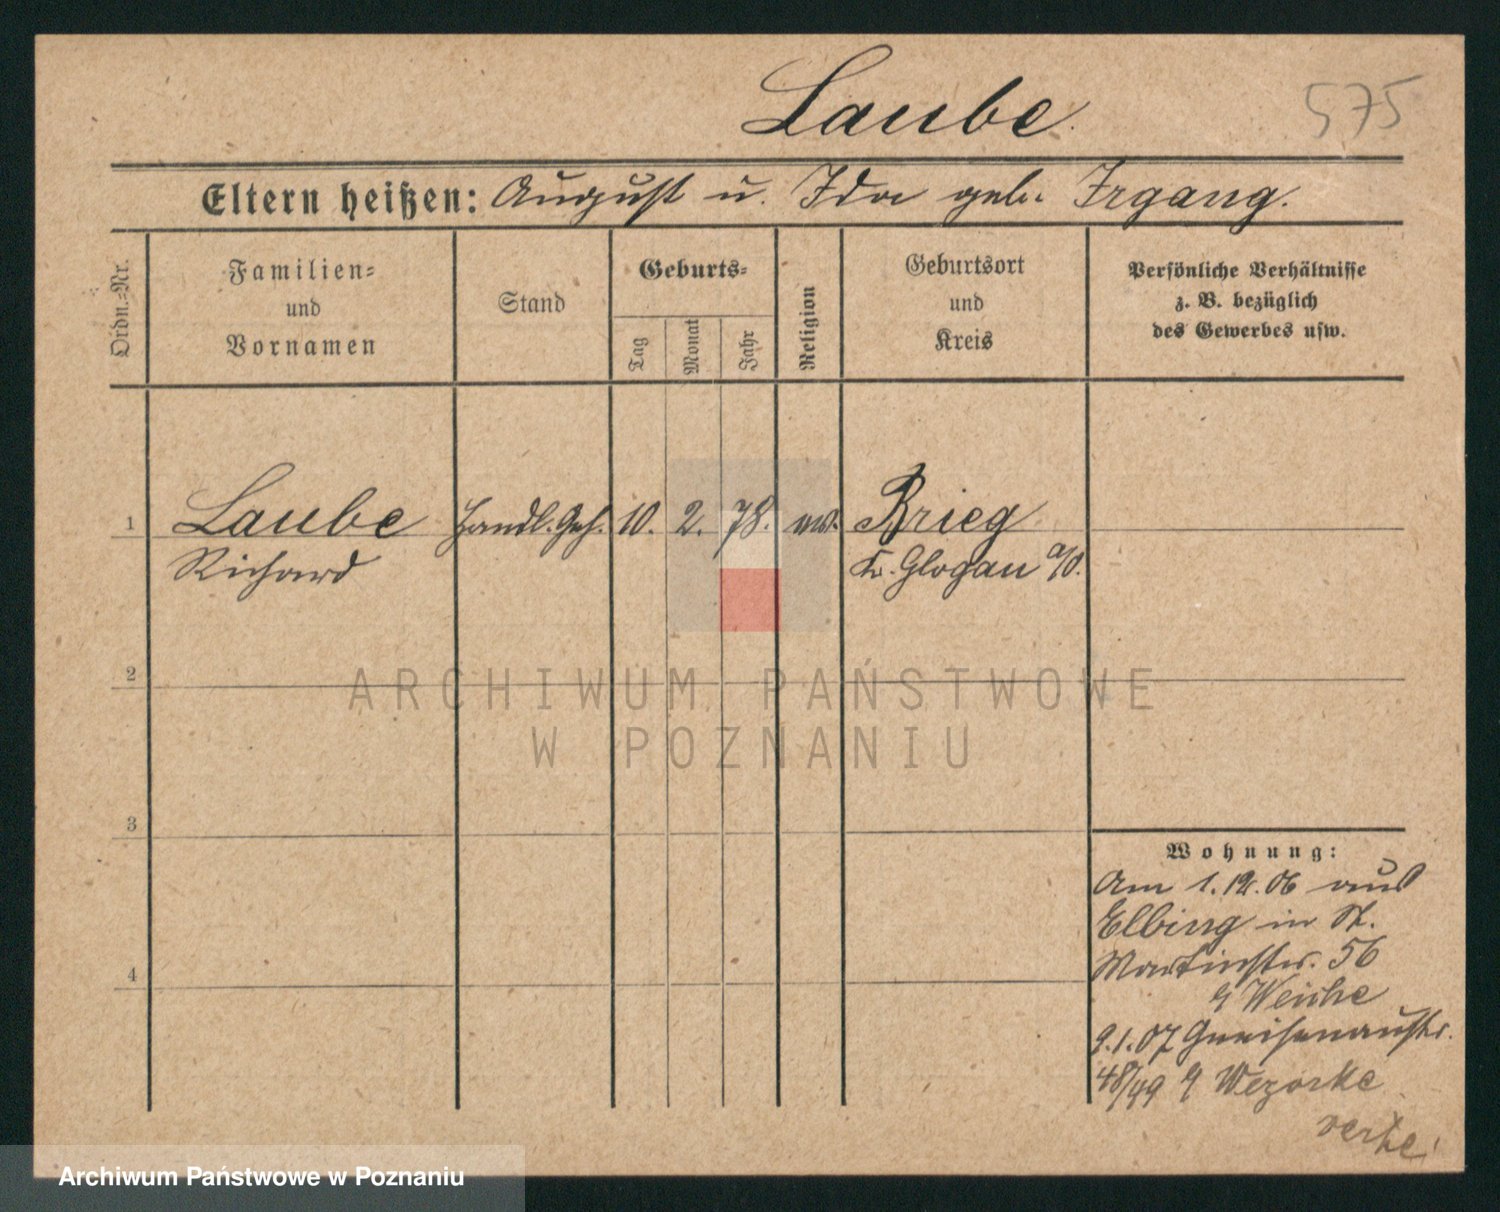 Laube
575
Eltern heißen: August u. Ida geb. Irgang.
Ordn.-Nr.
Familien-
und
Vornamen
Stand
Geburts-
Tag
Monat
Jahr
Religion
Geburtsort
und
Kreis
Persönliche Verhältnisse
z. B. bezüglich
des Gewerbes usw.
1 Laube Handl. Geh. 10. 2. 78. Brieg
Richard Kr. Glogau a/O.
2
ARCHIWUM PAŃSTWOWE
W POZNANIU
3
Wohnung:
Am 1.12.06 aus
Elbing in St.
Martinstr. 56
9.1.07 Gneisenaustr.
48/49
4
Archiwum Państwowe w Poznaniu